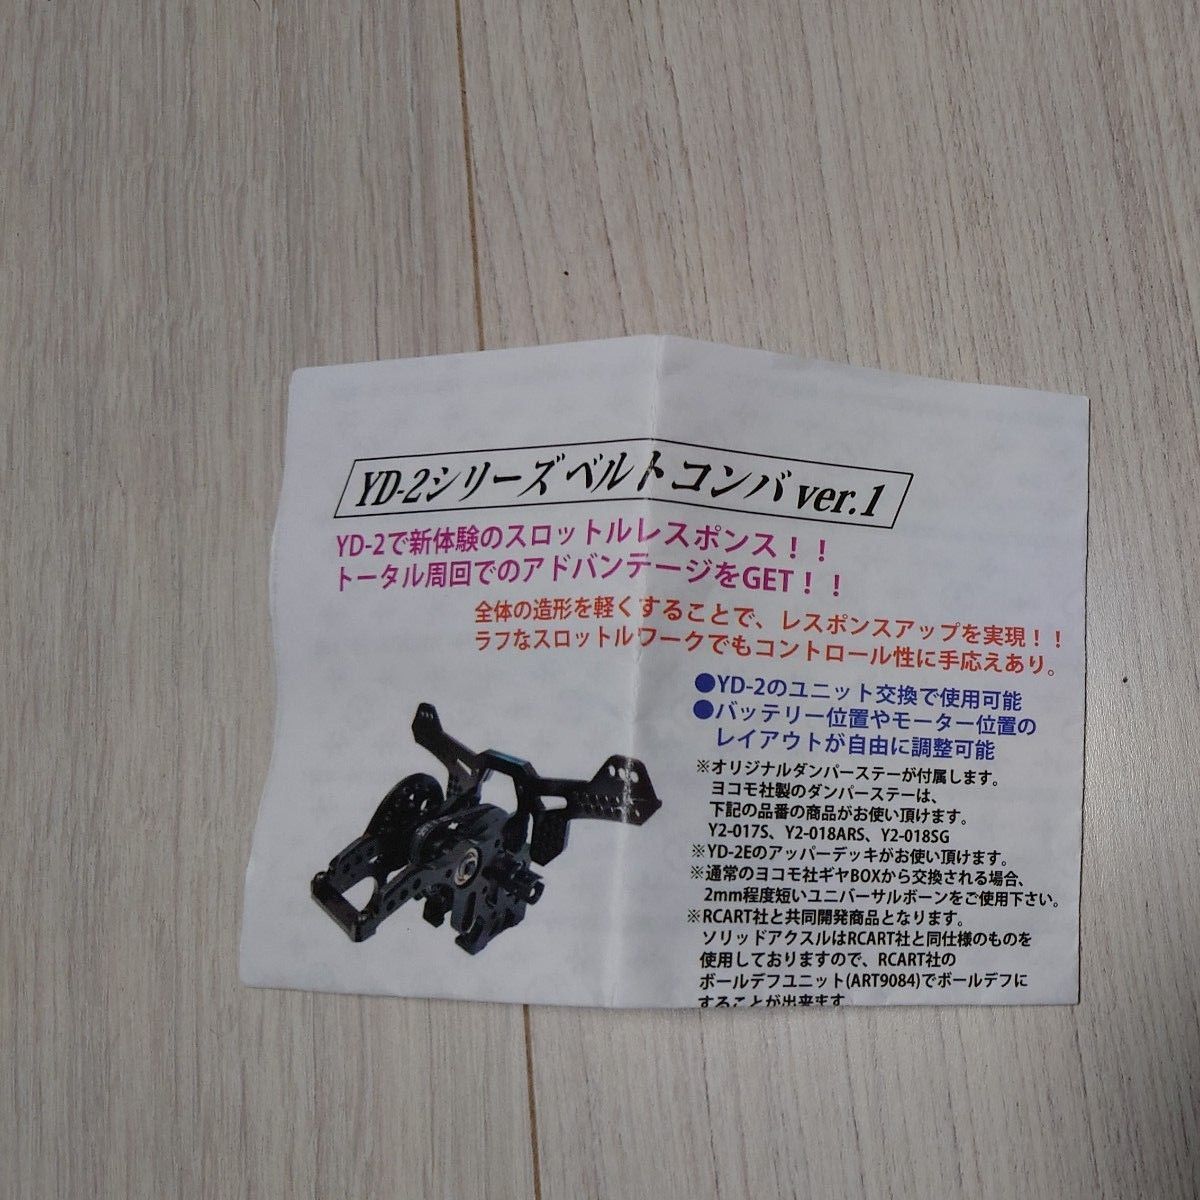 YD-2シリーズベルトコンバ ver.1
YD-2で新体験のスロットルレスポンス！！
トータル周回でのアドバンテージをGET！！
全体の造形を軽くすることで、レスポンスアップを実現！！
ラフなスロットルワークでもコントロール性に手応えあり。
●YD-2のユニット交換で使用可能
●バッテリー位置やモーター位置の
レイアウトが自由に調整可能
※オリジナルダンパーステーが付属します。
ヨコモ社製のダンパーステーは、
下記の品番の商品がお使い頂けます。
Y2-017S、Y2-018ARS、Y2-018SG
※YD-2Eのアッパーデッキがお使い頂けます。
※通常のヨコモ社ギヤBOXから交換される場合、
2mm程度短いユニバーサルボーンをご使用下さい。
※RCART社と共同開発商品となります。
ソリッドアクスルはRCART社と同仕様のものを
使用しておりますので、RCART社の
ボールデフユニット(ART9084)でボールデフに
することが出来ます